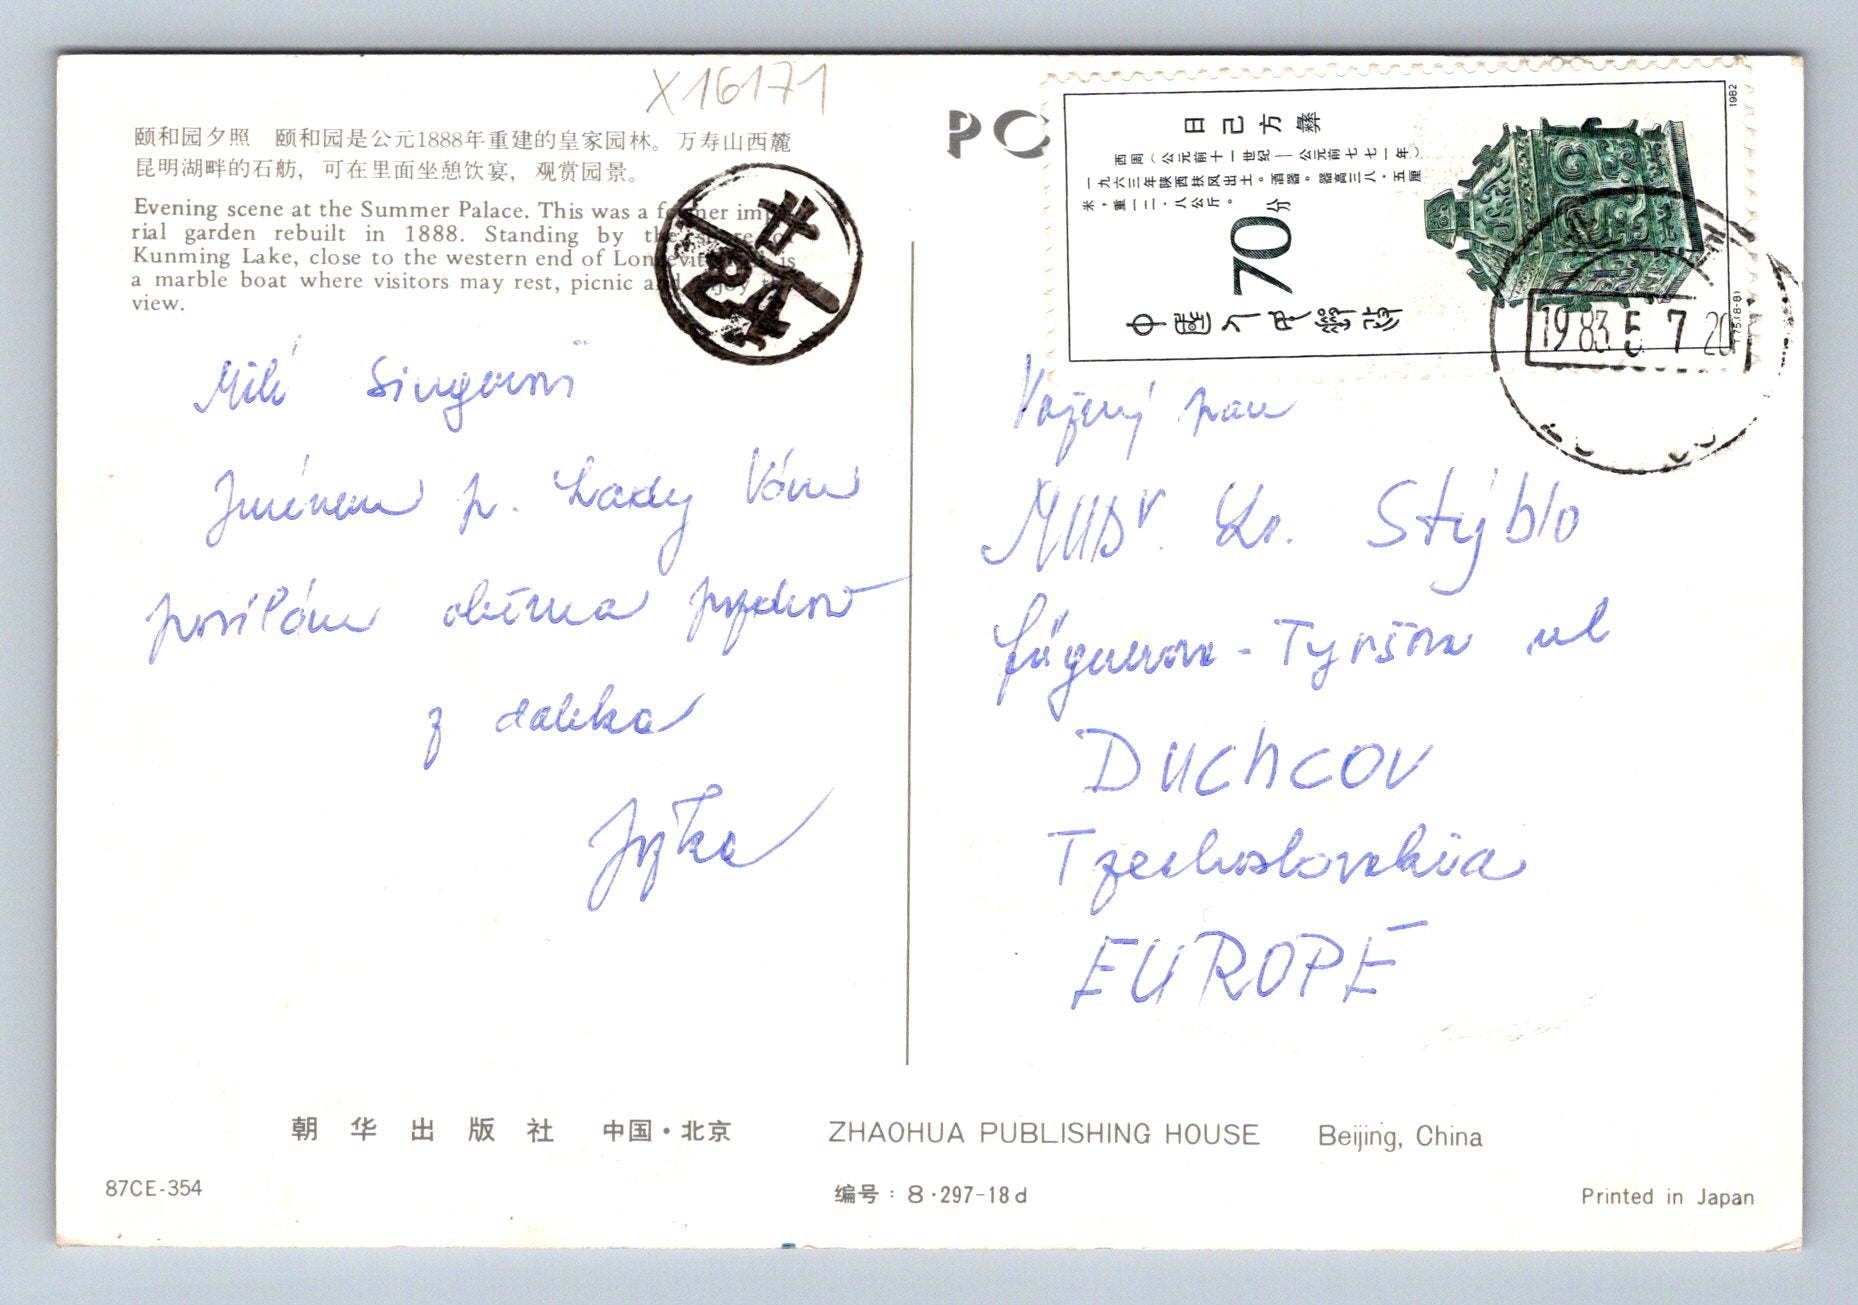 X16171
颐和园夕照 颐和园是公元1888年重建的皇家园林。万寿山西麓
昆明湖畔的石舫，可在里面坐憩饮宴，观赏园景。
Evening scene at the Summer Palace. This was a former impe-
rial garden rebuilt in 1888. Standing by the shore of
Kunming Lake, close to the western end of Longevity Hill, is
a marble boat where visitors may rest, picnic and enjoy the
view.
Milí
Jménem p. Lady Vám
posílám
z daleka
Jitka
PO
日己方彝
西周（公元前十一世纪—公元前七七一年）
一九六三年陕西扶风出土。酒器。器高三八·五厘
米，重一二·八公斤。
70分
中国人民邮政
1982
T75.(8-8)
1983 5 7 20
Vážený pan
MUDr. Stýblo
Tyršova ul
DUCHCOV
Tzechoslovakia
EUROPE
朝华出版社 中国·北京 ZHAOHUA PUBLISHING HOUSE Beijing, China
87CE-354 编号：8·297-18d Printed in Japan